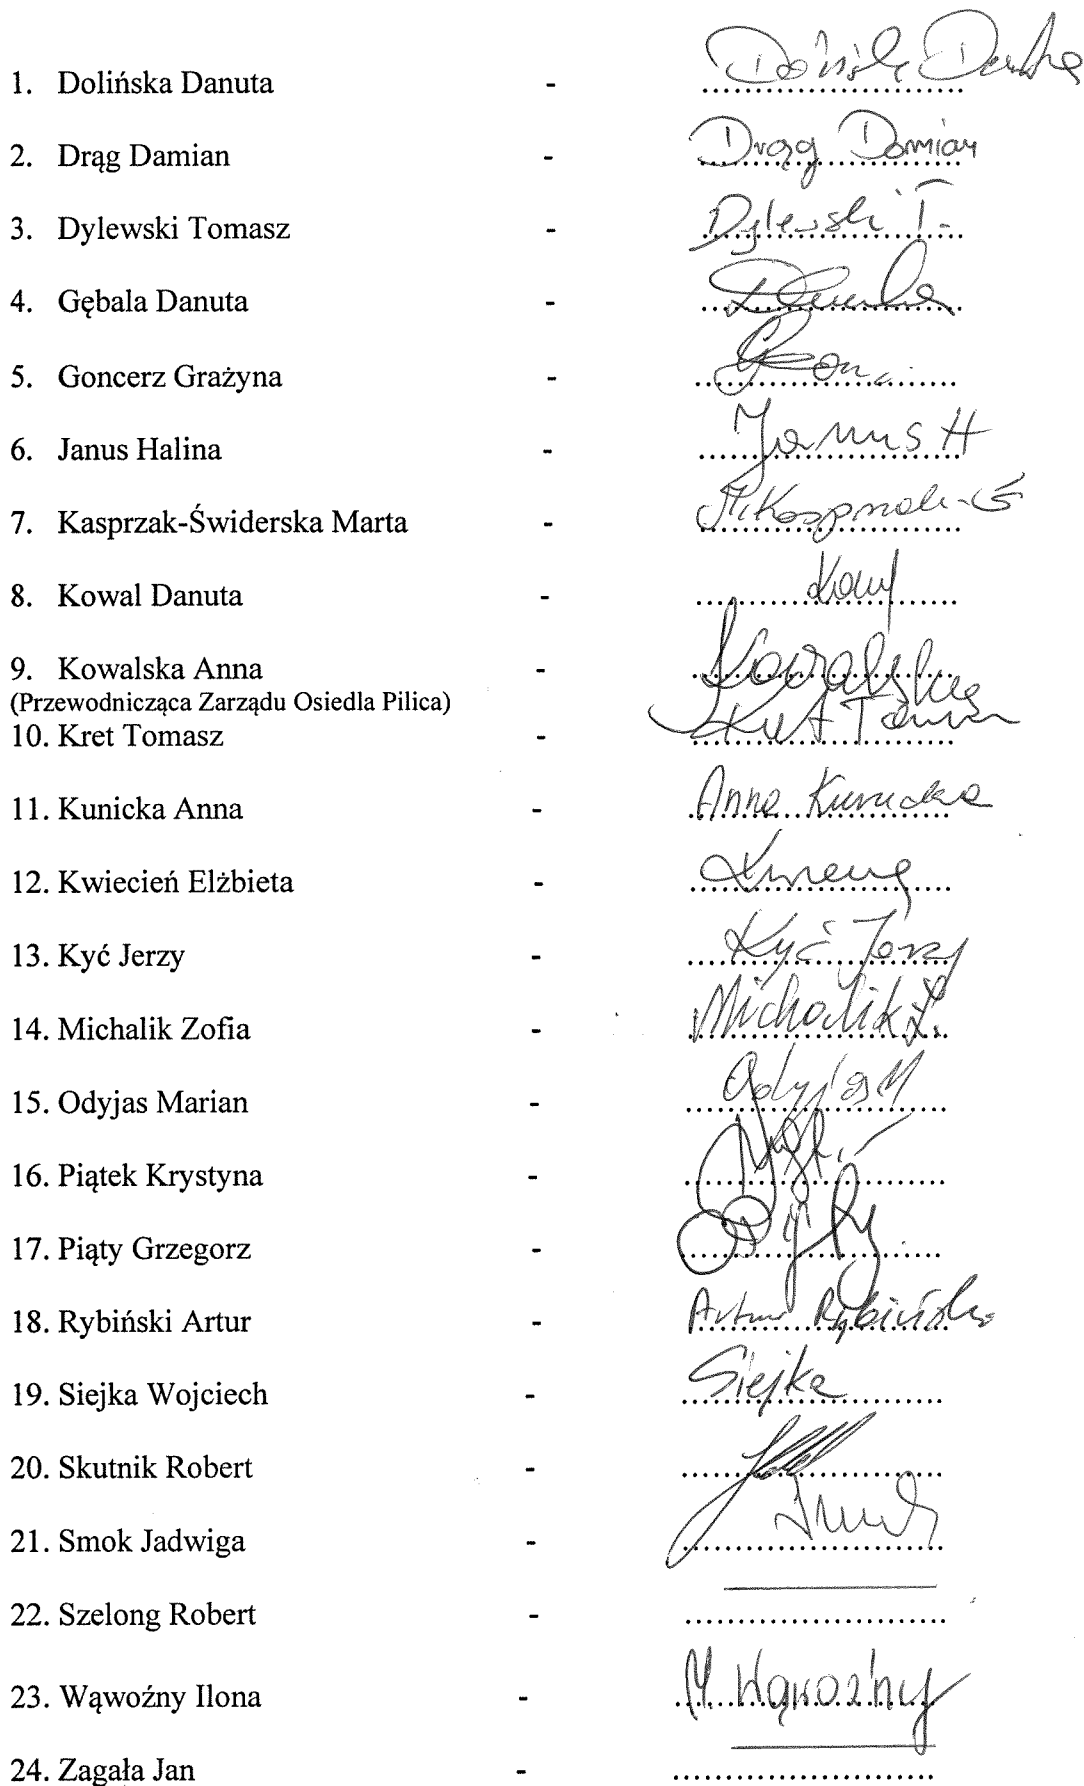 1. Dolińska Danuta - ........................
2. Drąg Damian - Drąg Damian
3. Dylewski Tomasz - Dylewski T.
4. Gębala Danuta - ........................
5. Goncerz Grażyna - ........................
6. Janus Halina - Janus H
7. Kasprzak-Świderska Marta - M.Kasprzak-Ś
8. Kowal Danuta - ........................
9. Kowalska Anna - Kowalska
(Przewodnicząca Zarządu Osiedla Pilica)
10. Kret Tomasz - Kret Tomasz
11. Kunicka Anna - Anna Kunicka
12. Kwiecień Elżbieta - ........................
13. Kyć Jerzy - Kyć Jerzy
14. Michalik Zofia - Michalik Z.
15. Odyjas Marian - Odyjas M
16. Piątek Krystyna - ........................
17. Piąty Grzegorz - ........................
18. Rybiński Artur - Artur Rybiński
19. Siejka Wojciech - Siejka
20. Skutnik Robert - ........................
21. Smok Jadwiga - ........................
22. Szelong Robert - ........................
23. Wąwoźny Ilona - M. Wąwoźny
24. Zagała Jan - ........................